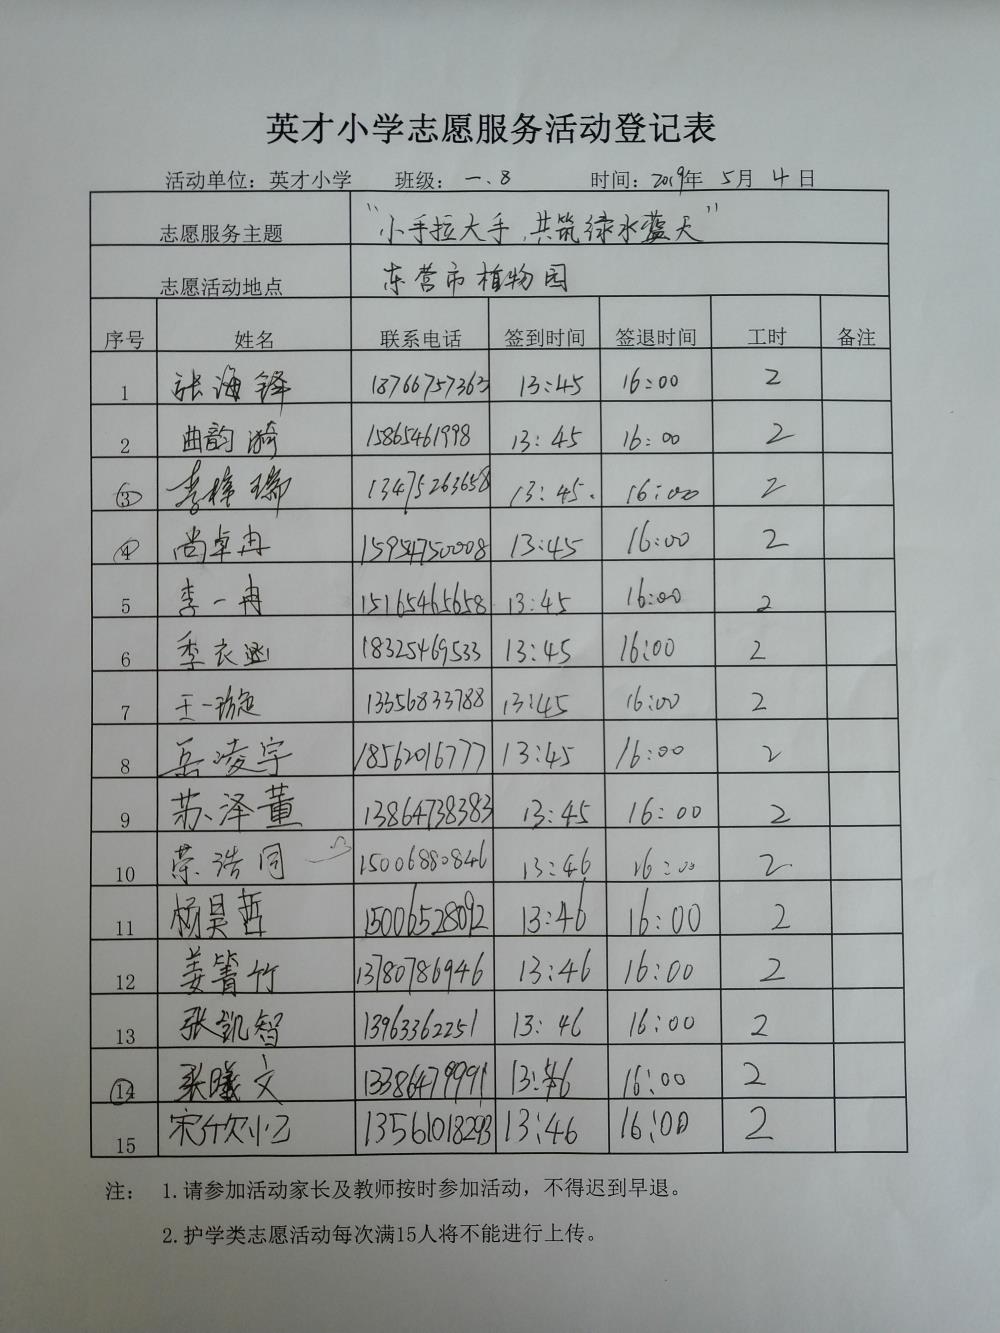 英才小学志愿服务活动登记表
活动单位：英才小学 班级：一.8 时间：2019年 5月 4日
志愿服务主题 “小手拉大手，共筑绿水蓝天”
志愿活动地点 东营市植物园
序号 姓名 联系电话 签到时间 签退时间 工时 备注
1 张海铎 18766757363 13:45 16:00 2
2 曲韵漪 15865461998 13:45 16:00 2
3 李梓瑞 13475263658 13:45. 16:00 2
4 尚卓冉 15954750008 13:45 16:00 2
5 李一冉 15165465658 13:45 16:00 2
6 季衣 18325469533 13:45 16:00 2
7 王一璇 13356833788 13:45 16:00 2
8 岳凌宇 18562016777 13:45 16:00 2
9 苏泽董 13864738383 13:45 16:00 2
10 荣浩同 15006880846 13:46 16:00 2
11 杨昊哲 15006528092 13:46 16:00 2
12 姜箐竹 13780786946 13:46 16:00 2
13 张凯智 13963362251 13:46 16:00 2
14 张曦文 13386479991 13:46 16:00 2
15 宋 13561018293 13:46 16:00 2
注： 1.请参加活动家长及教师按时参加活动，不得迟到早退。
2.护学类志愿活动每次满15人将不能进行上传。